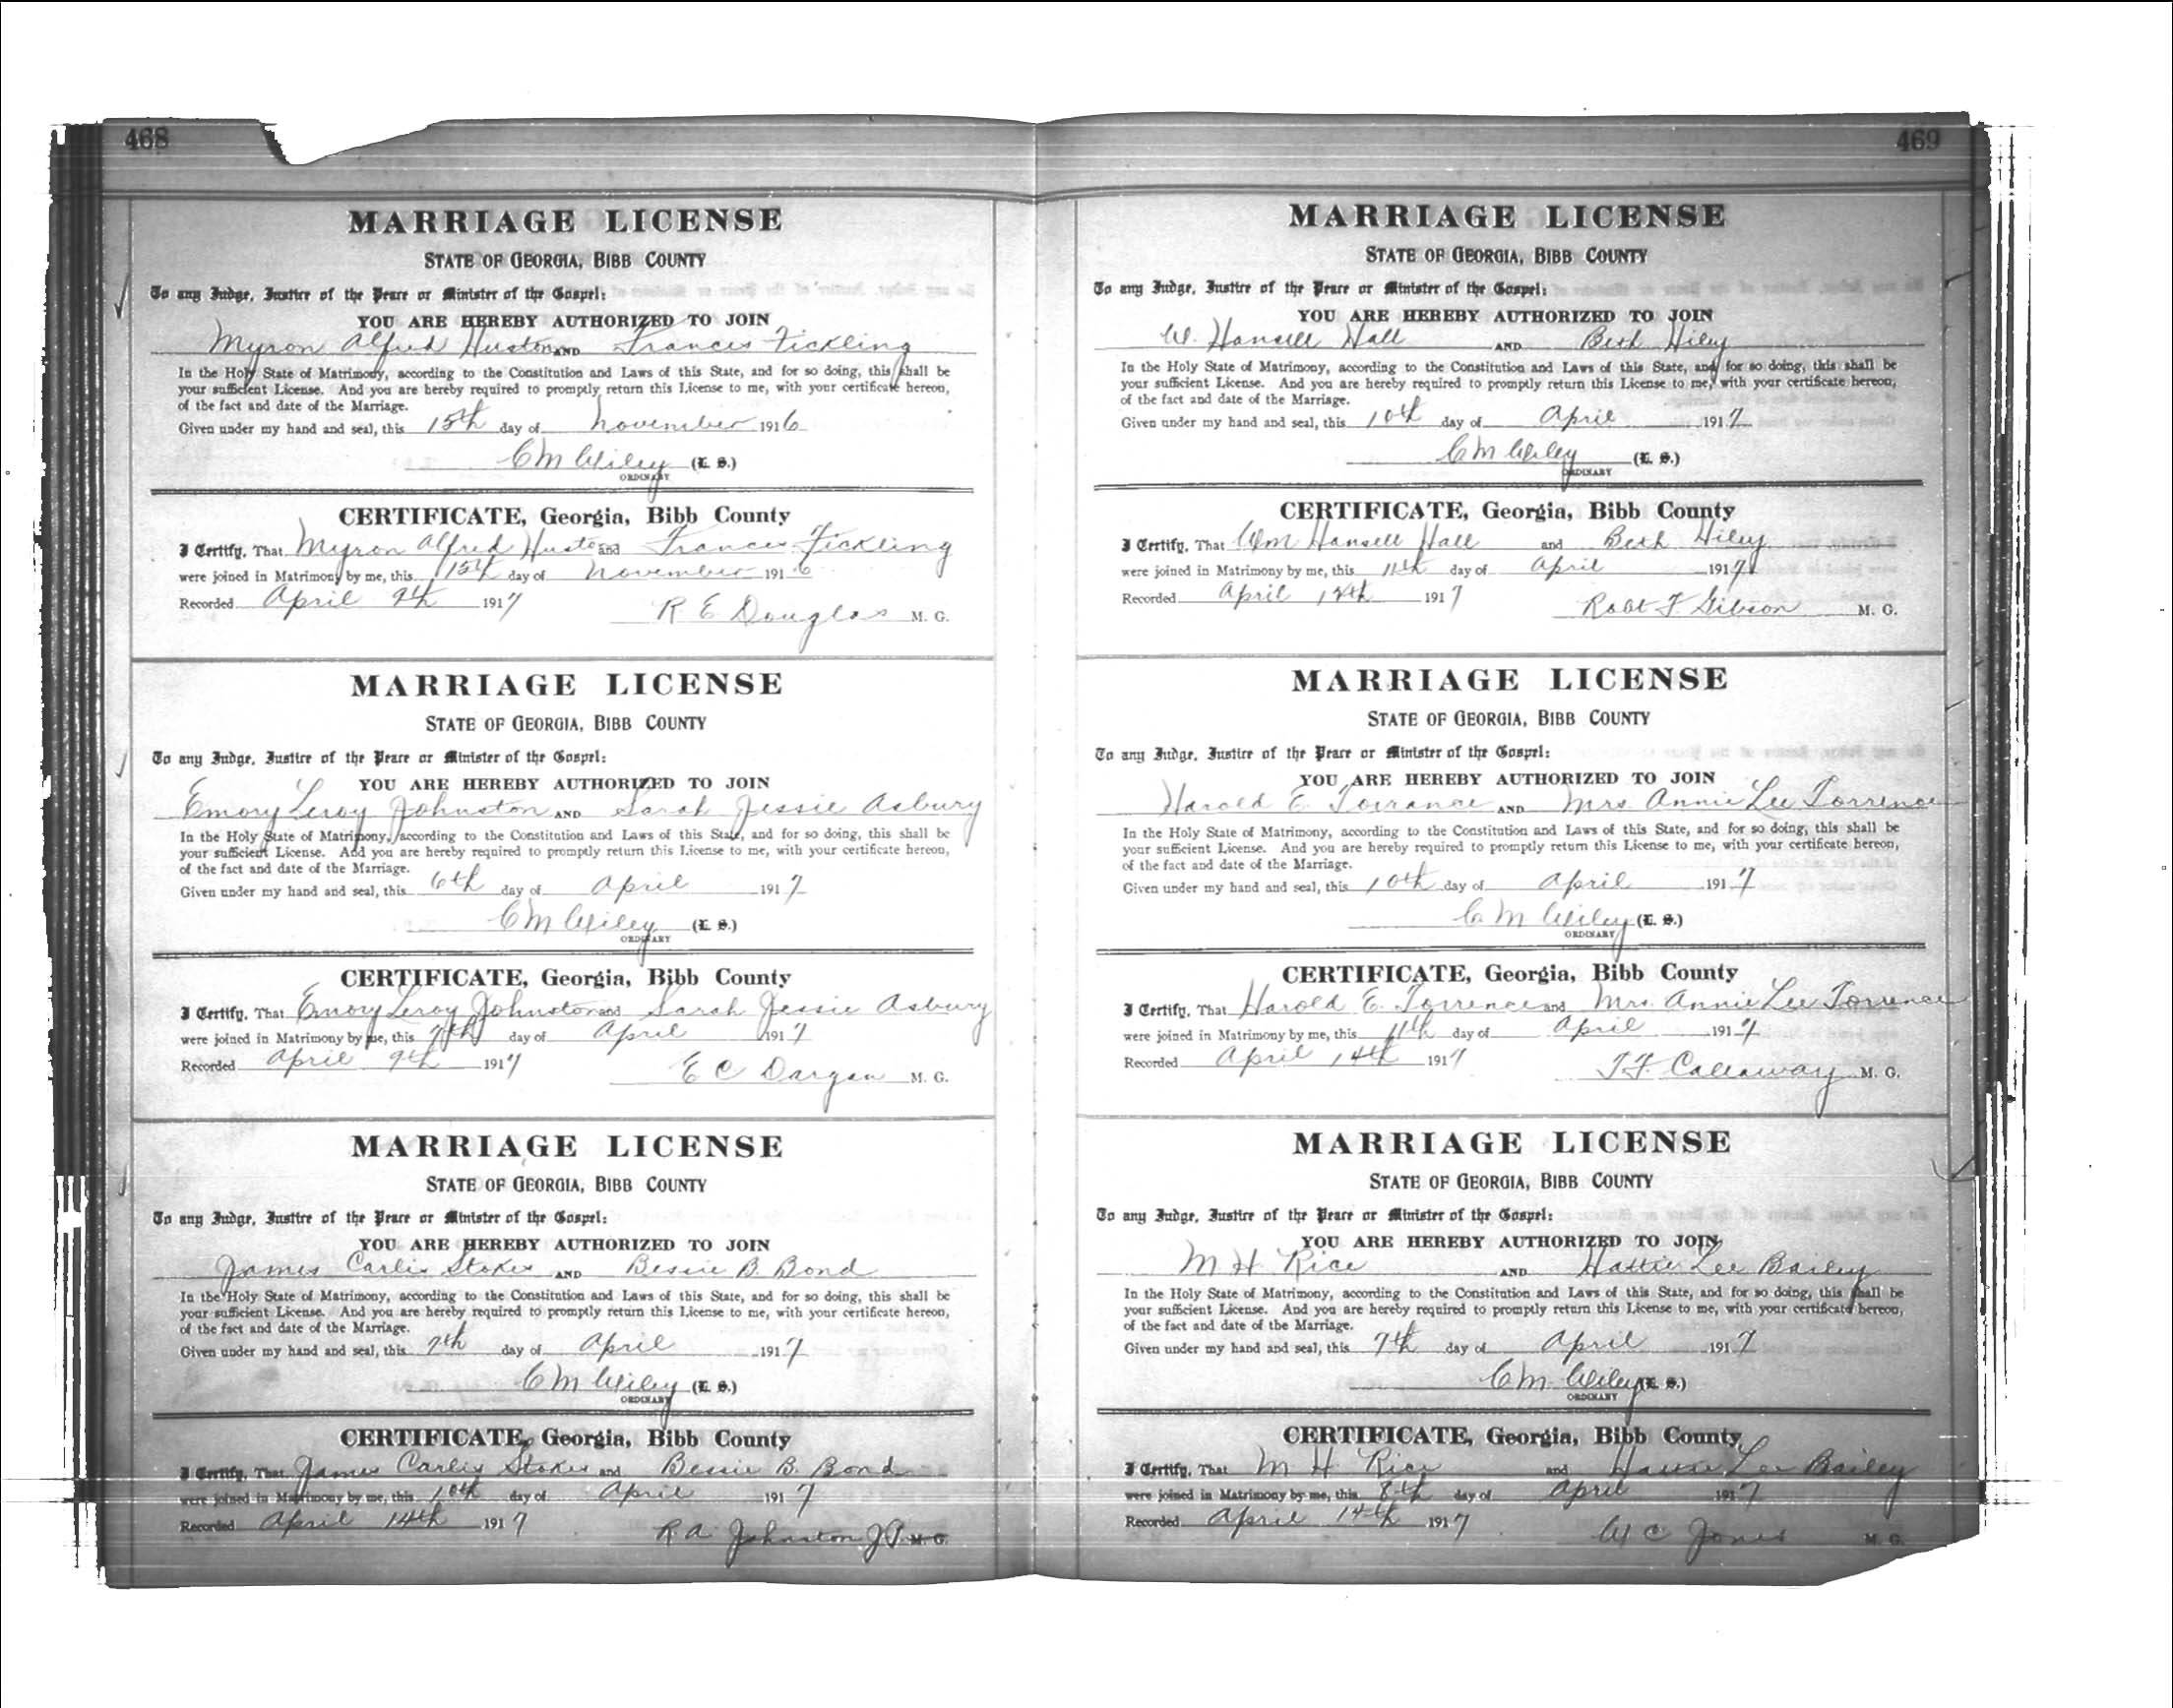 468
MARRIAGE LICENSE
STATE OF GEORGIA, BIBB COUNTY
To any Judge, Justice of the Peace or Minister of the Gospel:
YOU ARE HEREBY AUTHORIZED TO JOIN
Myron Alfred Huston AND Frances Fickling
In the Holy State of Matrimony, according to the Constitution and Laws of this State, and for so doing, this shall be
your sufficient License. And you are hereby required to promptly return this License to me, with your certificate hereon,
of the fact and date of the Marriage.
Given under my hand and seal, this 15th day of November 1916
C M Wiley (L. S.)
ORDINARY
CERTIFICATE, Georgia, Bibb County
I Certify, That Myron Alfred Huston and Frances Fickling
were joined in Matrimony by me, this 15th day of November 1916
Recorded April 9th 1917
R E Douglas M. G.
MARRIAGE LICENSE
STATE OF GEORGIA, BIBB COUNTY
To any Judge, Justice of the Peace or Minister of the Gospel:
YOU ARE HEREBY AUTHORIZED TO JOIN
Emory Leroy Johnston AND Sarah Jessie Asbury
In the Holy State of Matrimony, according to the Constitution and Laws of this State, and for so doing, this shall be
your sufficient License. And you are hereby required to promptly return this License to me, with your certificate hereon,
of the fact and date of the Marriage.
Given under my hand and seal, this 6th day of April 1917
C M Wiley (L. S.)
ORDINARY
CERTIFICATE, Georgia, Bibb County
I Certify, That Emory Leroy Johnston and Sarah Jessie Asbury
were joined in Matrimony by me, this 7th day of April 1917
Recorded April 9th 1917
E C Dargan M. G.
MARRIAGE LICENSE
STATE OF GEORGIA, BIBB COUNTY
To any Judge, Justice of the Peace or Minister of the Gospel:
YOU ARE HEREBY AUTHORIZED TO JOIN
James Carlis Stokes AND Bessie B. Bond
In the Holy State of Matrimony, according to the Constitution and Laws of this State, and for so doing, this shall be
your sufficient License. And you are hereby required to promptly return this License to me, with your certificate hereon,
of the fact and date of the Marriage.
Given under my hand and seal, this 7th day of April 1917
C M Wiley (L. S.)
ORDINARY
CERTIFICATE, Georgia, Bibb County
I Certify, That James Carlis Stokes and Bessie B. Bond
were joined in Matrimony by me, this 10th day of April 1917
Recorded April 14th 1917
R A Johnston J P M. G.
469
MARRIAGE LICENSE
STATE OF GEORGIA, BIBB COUNTY
To any Judge, Justice of the Peace or Minister of the Gospel:
YOU ARE HEREBY AUTHORIZED TO JOIN
W. Hansell Hall AND Beth Hiley
In the Holy State of Matrimony, according to the Constitution and Laws of this State, and for so doing, this shall be
your sufficient License. And you are hereby required to promptly return this License to me, with your certificate hereon,
of the fact and date of the Marriage.
Given under my hand and seal, this 10th day of April 1917
C M Wiley (L. S.)
ORDINARY
CERTIFICATE, Georgia, Bibb County
I Certify, That Wm Hansell Hall and Beth Hiley
were joined in Matrimony by me, this 11th day of April 1917
Recorded April 12th 1917
Robt F. Gibson M. G.
MARRIAGE LICENSE
STATE OF GEORGIA, BIBB COUNTY
To any Judge, Justice of the Peace or Minister of the Gospel:
YOU ARE HEREBY AUTHORIZED TO JOIN
Harold E. Torrance AND Mrs Annie Lee Torrence
In the Holy State of Matrimony, according to the Constitution and Laws of this State, and for so doing, this shall be
your sufficient License. And you are hereby required to promptly return this License to me, with your certificate hereon,
of the fact and date of the Marriage.
Given under my hand and seal, this 10th day of April 1917
C. M Wiley (L. S.)
ORDINARY
CERTIFICATE, Georgia, Bibb County
I Certify, That Harold E. Torrence and Mrs. Annie Lee Torrence
were joined in Matrimony by me, this 11th day of April 1917
Recorded April 14th 1917
T. F. Callaway M. G.
MARRIAGE LICENSE
STATE OF GEORGIA, BIBB COUNTY
To any Judge, Justice of the Peace or Minister of the Gospel:
YOU ARE HEREBY AUTHORIZED TO JOIN
M H Rice AND Hattie Lee Bailey
In the Holy State of Matrimony, according to the Constitution and Laws of this State, and for so doing, this shall be
your sufficient License. And you are hereby required to promptly return this License to me, with your certificate hereon,
of the fact and date of the Marriage.
Given under my hand and seal, this 7th day of April 1917
C M. Wiley (L. S.)
ORDINARY
CERTIFICATE, Georgia, Bibb County
I Certify, That M. H. Rice and Hattie Lee Bailey
were joined in Matrimony by me, this 8th day of April 1917
Recorded April 14th 1917
W C Jones M. G.